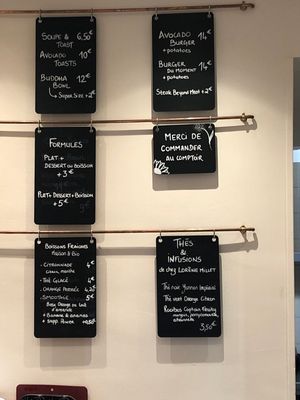 SOUPE & 6,50
TOAST
AVOCADO 10€
TOASTS
BUDDHA 12€
BOWL
↳ SUPER SIZE +2€
AVOCADO 14€
BURGER
+ POTATOES
BURGER 14€
DU MOMENT
+ POTATOES
Steak Beyond Meat +2€
FORMULES
PLAT +
DESSERT OU BOISSON
+3€
PLAT + DESSERT + BOISSON
+5€
MERCI DE
COMMANDER
AU COMPTOIR
BOISSONS FRAÎCHES
MAISON & BIO
- CITRONNADE 4€
Citron, menthe
- THÉ GLACÉ 4€
- ORANGE PRESSÉE 4,20
- SMOOTHIE 5€
Base Orange ou lait
d'amande
+ Banane & ananas
+ SUPP. POWER +0,50
THÉS
&
INFUSIONS
de chez LORÈNE MILLET
Thé noir Yunnan Impérial
Thé vert Orange Citron
Rooibos
3,50€